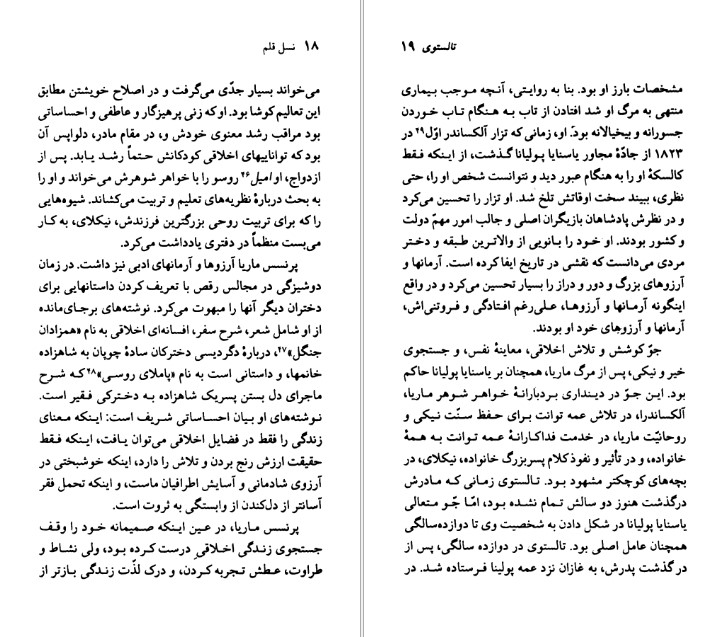 ۱۸ نسل قلم
می‌خواند بسیار جدّی می‌گرفت و در اصلاح خویشتن مطابق
این تعالیم کوشا بود. او که زنی پرهیزگار و عاطفی و احساساتی
بود مراقب رشد معنوی خودش و، در مقام مادر، دلواپس آن
بود که تواناییهای اخلاقی کودکانش حتماً رشد یابد. پس از
ازدواج، او امیل۲۶ روسو را با خواهر شوهرش می‌خواند و او را
به بحث دربارهٔ نظریه‌های تعلیم و تربیت می‌کشاند. شیوه‌هایی
را که برای تربیت روحی بزرگترین فرزندش، نیکلای، به کار
می‌بست منظماً در دفتری یادداشت می‌کرد.
پرنسس ماریا آرزوها و آرمانهای ادبی نیز داشت. در زمان
دوشیزگی در مجالس رقص با تعریف کردن داستانهایی برای
دختران دیگر آنها را مبهوت می‌کرد. نوشته‌های برجای‌مانده
از او شامل شعر، شرح سفر، افسانه‌ای اخلاقی به نام «همزادان
جنگل»۲۷، دربارهٔ دگردیسی دخترکان سادهٔ چوپان به شاهزاده
خانمها، و داستانی است به نام «پاملای روسی»۲۸ که شرح
ماجرای دل بستن پسریک شاهزاده به دخترکی فقیر است.
نوشته‌های او بیان احساساتی شریف است: اینکه معنای
زندگی را فقط در فضایل اخلاقی می‌توان یافت، اینکه فقط
حقیقت ارزش رنج بردن و تلاش را دارد، اینکه خوشبختی در
آرزوی شادمانی و آسایش اطرافیان ماست، و اینکه تحمل فقر
آسانتر از دل‌کندن از وابستگی به ثروت است.
پرنسس ماریا، در عین اینکه صمیمانه خود را وقف
جستجوی زندگی اخلاقی درست کرده بود، ولی نشاط و
طراوت، عطش تجربه کردن، و درک لذّت زندگی بازتر از
تالستوی ۱۹
مشخصات بارز او بود. بنا به روایتی، آنچه موجب بیماری
منتهی به مرگ او شد افتادن از تاب به هنگام تاب خوردن
جسورانه و بیخیالانه بود. او، زمانی که تزار آلکساندر اوّل۲۹ در
۱۸۲۳ از جادّهٔ مجاور یاسنایا پولیانا گذشت، از اینکه فقط
کالسکهٔ او را به هنگام عبور دید و نتوانست شخص او را، حتی
نظری، ببیند سخت اوقاتش تلخ شد. او تزار را تحسین می‌کرد
و در نظرش پادشاهان بازیگران اصلی و جالب امور مهمّ دولت
و کشور بودند. او خود را بانویی از والاترین طبقه و دختر
مردی می‌دانست که نقشی در تاریخ ایفا کرده است. آرمانها و
آرزوهای بزرگ و دور و دراز را بسیار تحسین می‌کرد و در واقع
اینگونه آرمانها و آرزوها، علی‌رغم افتادگی و فروتنی‌اش،
آرمانها و آرزوهای خود او بودند.
جوّ کوشش و تلاش اخلاقی، معاینهٔ نفس، و جستجوی
خیر و نیکی، پس از مرگ ماریا، همچنان بر یاسنایا پولیانا حاکم
بود. این جوّ در دینداری بردبارانهٔ خواهر شوهر ماریا،
آلکساندرا، در تلاش عمه توانت برای حفظ سنّت نیکی و
روحانیّت ماریا، در خدمت فداکارانهٔ عمه توانت به همهٔ
خانواده، و در تأثیر و نفوذ کلام پسربزرگ خانواده، نیکلای، در
بچه‌های کوچکتر مشهود بود. تالستوی زمانی که مادرش
درگذشت هنوز دو سالش تمام نشده بود، امّا جّو متعالی
یاسنایا پولیانا در شکل دادن به شخصیت وی تا دوازده‌سالگی
همچنان عامل اصلی بود. تالستوی در دوازده سالگی، پس از
درگذشت پدرش، به غازان نزد عمه پولینا فرستاده شد. در